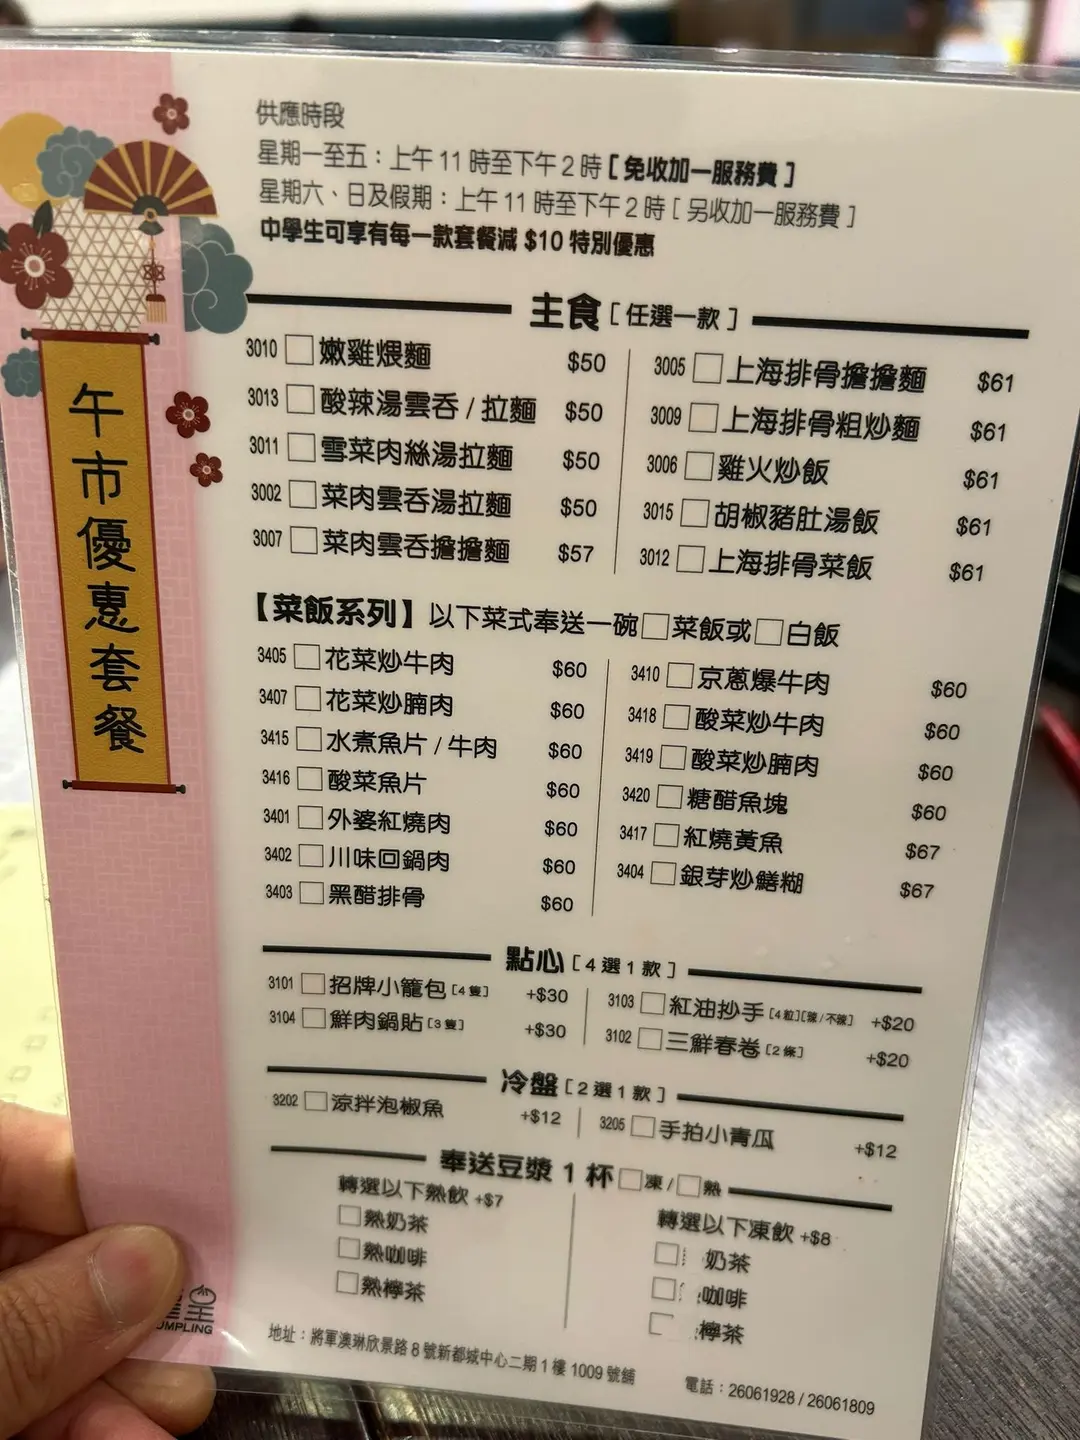 供應時段
星期一至五：上午 11 時至下午 2 時 [ 免收加一服務費 ]
星期六、日及假期：上午 11 時至下午 2 時 [ 另收加一服務費 ]
中學生可享有每一款套餐減 $10 特別優惠
午市優惠套餐
主食 [ 任選一款 ]
3010 嫩雞煨麵 $50
3013 酸辣湯雲吞 / 拉麵 $50
3011 雪菜肉絲湯拉麵 $50
3002 菜肉雲吞湯拉麵 $50
3007 菜肉雲吞擔擔麵 $57
3005 上海排骨擔擔麵 $61
3009 上海排骨粗炒麵 $61
3006 雞火炒飯 $61
3015 胡椒豬肚湯飯 $61
3012 上海排骨菜飯 $61
【菜飯系列】以下菜式奉送一碗 菜飯或 白飯
3405 花菜炒牛肉 $60
3407 花菜炒腩肉 $60
3415 水煮魚片 / 牛肉 $60
3416 酸菜魚片 $60
3401 外婆紅燒肉 $60
3402 川味回鍋肉 $60
3403 黑醋排骨 $60
3410 京蔥爆牛肉 $60
3418 酸菜炒牛肉 $60
3419 酸菜炒腩肉 $60
3420 糖醋魚塊 $60
3417 紅燒黃魚 $67
3404 銀芽炒鱔糊 $67
點心 [ 4 選 1 款 ]
3101 招牌小籠包 [ 4 隻 ] +$30
3104 鮮肉鍋貼 [ 3 隻 ] +$30
3103 紅油抄手 [ 4 粒 ][ 辣 / 不辣 ] +$20
3102 三鮮春卷 [ 2 條 ] +$20
冷盤 [ 2 選 1 款 ]
3202 涼拌泡椒魚 +$12
3205 手拍小青瓜 +$12
奉送豆漿 1 杯 凍 / 熱
轉選以下熱飲 +$7
熱奶茶
熱咖啡
熱檸茶
轉選以下凍飲 +$8
奶茶
咖啡
檸茶
UMPLING
地址：將軍澳琳欣景路 8 號新都城中心二期 1 樓 1009 號舖
電話：26061928 / 26061809